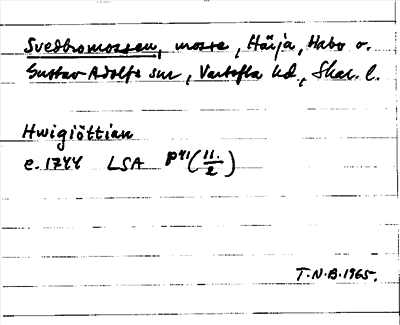 Svedbromossen, mosse, Härja, Habo o.
Gustav Adolfs snr, Vartofta hd., Skar. l.
Hwigiöttian
e. 1744 LSA P41 (11./2)
T.N.B. 1965.